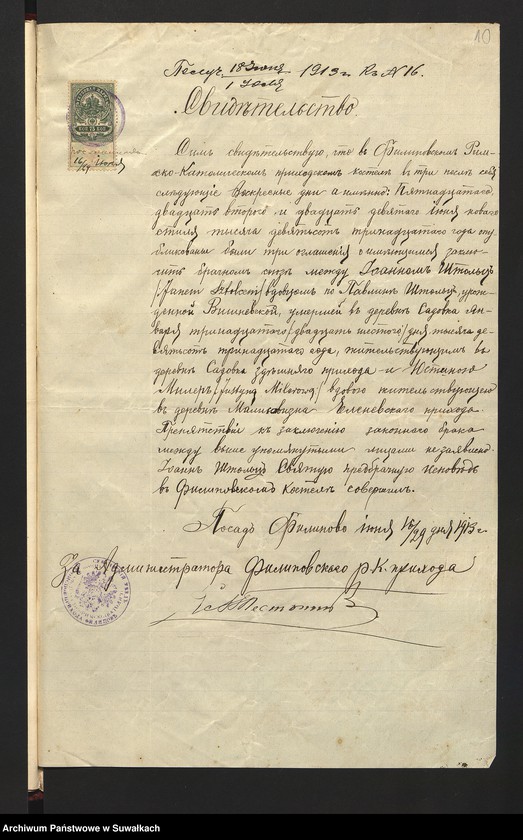 10
Получ. 18 Іюня / 1 Іюля 1913 г. Къ № 16.
Свидѣтельство.
Симъ свидѣтельствую, что въ Филиповскомъ Рим-
ско-Католическомъ приходскомъ костелѣ въ три
слѣдующіе Воскресные дни а именно: Пятнадцатаго,
двадцать второго и двадцать девятаго іюня новаго
стиля тысяча девятьсотъ тринадцатаго года опу
бликованы были три оглашенія о имѣющемся заклю-
чить брачномъ союзѣ между Іоанномъ Штольцъ
/Janem Sztolcem/ вдовцомъ по Павлинѣ Штольцъ, урож-
денной Вишневской, умершей въ деревнѣ Садовка ян-
варя тринадцатаго /двадцать шестого/ дня тысяча де-
вятьсотъ тринадцатаго года, жительствующимъ въ
деревнѣ Садовка здѣшняго прихода и Юстиною
Милеръ /Justyną Milerową:/ вдовою жительствующею
въ деревнѣ Малиновизна Еленевскаго прихода.
Препятствій къ заключенію законнаго брака
между выше упомянутыми лицами не заявлено.
Іоаннъ Штольцъ Святую предбрачную Исповѣдь
въ Филиповскомъ Костелѣ совершилъ.
Посадъ Филипово іюня 16/29 дня 1913 г.
За Администратора Филиповскаго р. К. прихода
16/29 Іюня
Archiwum Państwowe w Suwałkach